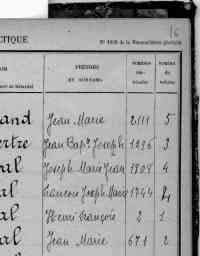 16
CTIQUE
N° 1036 de la Nomenclature générale
PRÉNOMS
NUMÉROS
NUMÉRO
and Jean Marie 2111 5
ertre Jean Bapt Joseph 1296 3
al Joseph Marie Jean 1804 4
al François Joseph Marie 1744 4
al Henri François 2 1
al Jean Marie 671 2